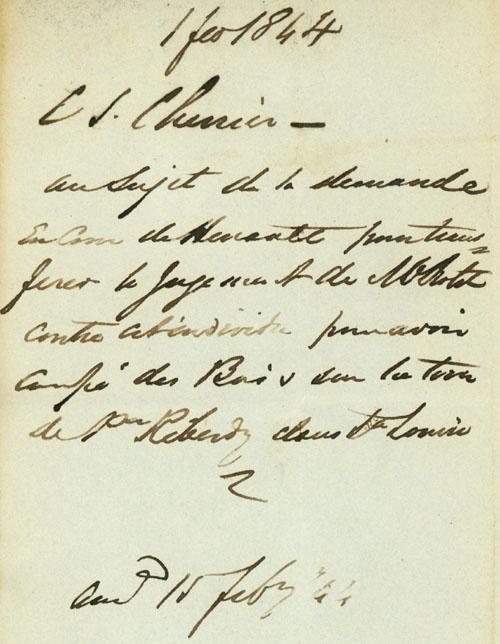 1 fev 1844
C S. Cherrier —
au Sujet de la demande
en Cour de pour trans=
ferer le Jugement de Mr
contre cet individu pour avoir
coupé des Bois sur la terre
de Pre Reberdy dans Ste Louise
ansd 15 feby '44